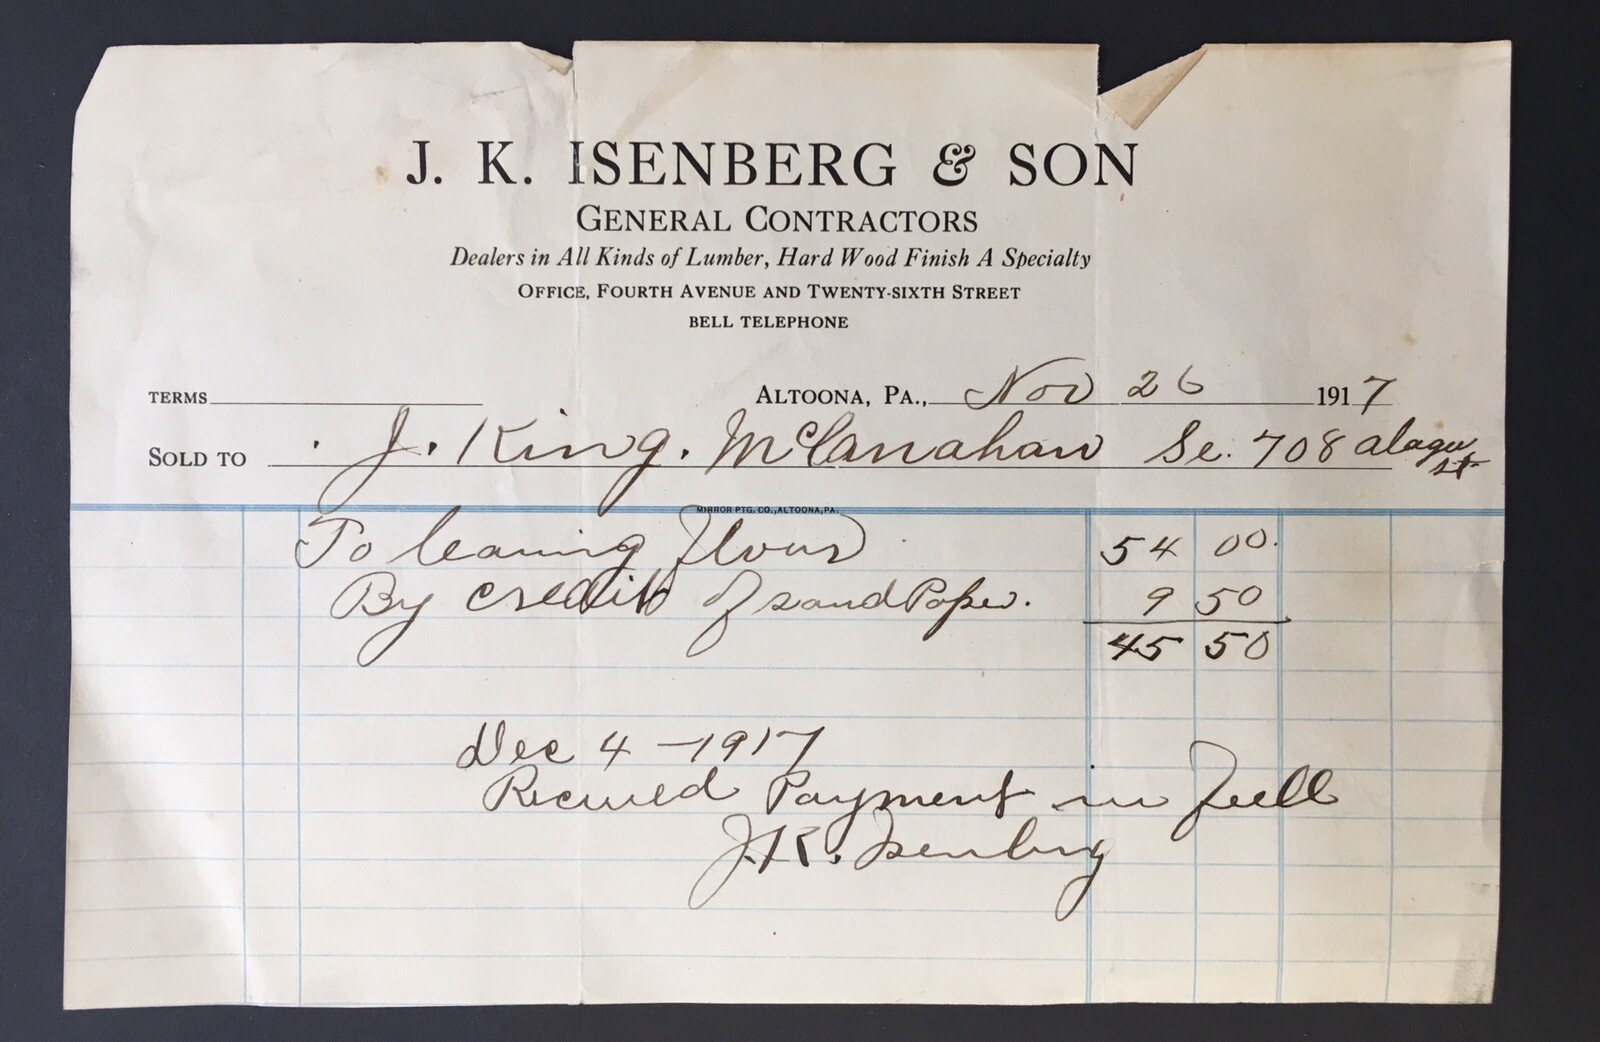 J. K. ISENBERG & SON
GENERAL CONTRACTORS
Dealers in All Kinds of Lumber, Hard Wood Finish A Specialty
OFFICE, FOURTH AVENUE AND TWENTY-SIXTH STREET
BELL TELEPHONE
TERMS ALTOONA, PA., Nov 26 1917
SOLD TO J. King. McClanahan 708
st
MIRROR PTG. CO., ALTOONA, PA.
To 54 00.
By credit of sand Paper. 9 50
45 50
Dec 4 - 1917
Received Payment in full
J.K. Isenberg